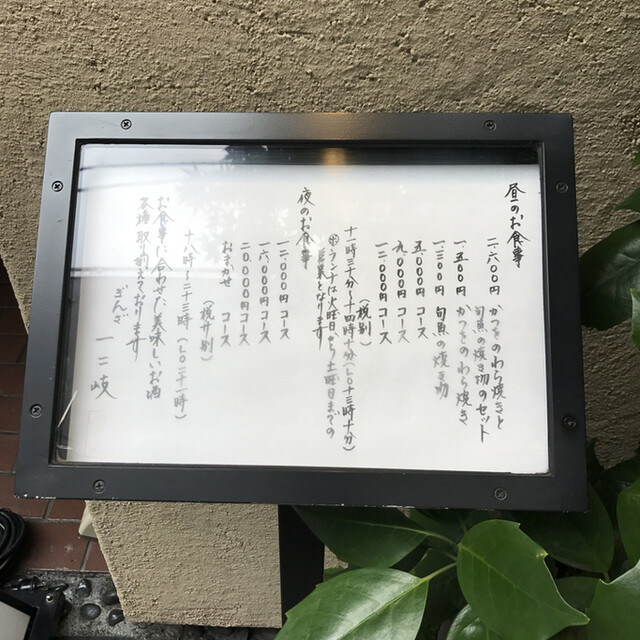 昼のお食事
二、六〇〇円 かつをのわら焼きと
旬魚の焼き物のセット
一、五〇〇円 かつをのわら焼き
一、三〇〇円 旬魚の焼き物
五、〇〇〇円 コース
九、〇〇〇円 コース
一二、〇〇〇円 コース
(税別)
十一時三十分〜十四時十分(L.O十三時十分)
ランチは火曜日から土曜日までの
営業となります
夜のお食事
一二、〇〇〇円 コース
一六、〇〇〇円 コース
二〇、〇〇〇円 コース
おまかせ コース
(税サ別)
十八時〜二十三時(L.O二十一時)
お食事に合わせた美味しいお酒
各種取り揃えております
ぎんざ
一二岐